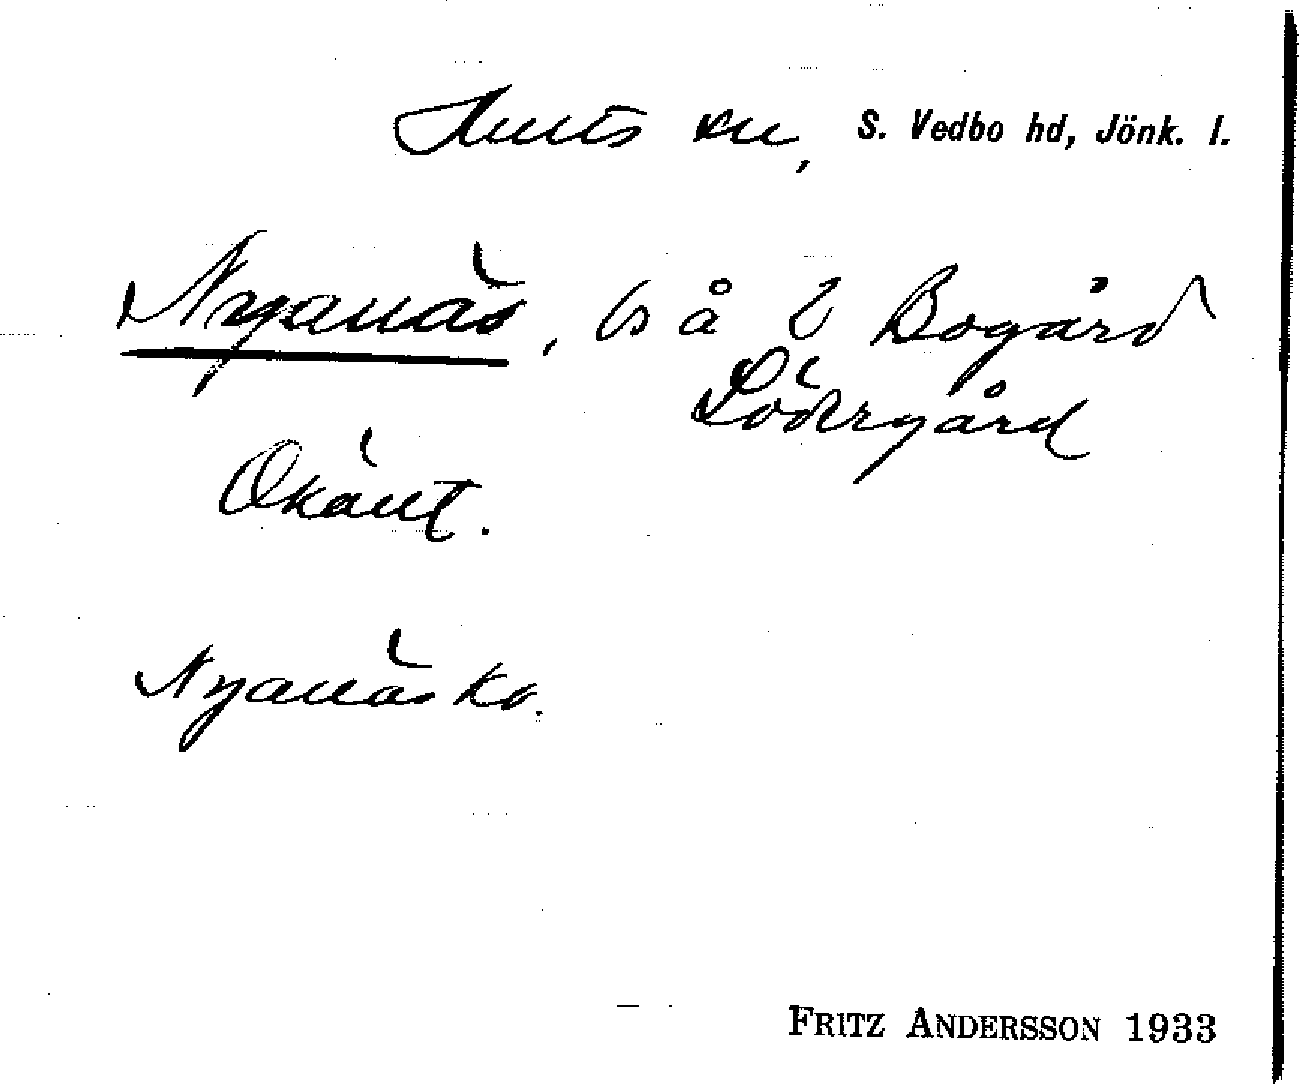 Hults sn, S. Vedbo hd, Jönk. l.
Nyanäs, ls å Bogård
Södergård
Okänt.
Nyanäs ko.
FRITZ ANDERSSON 1933